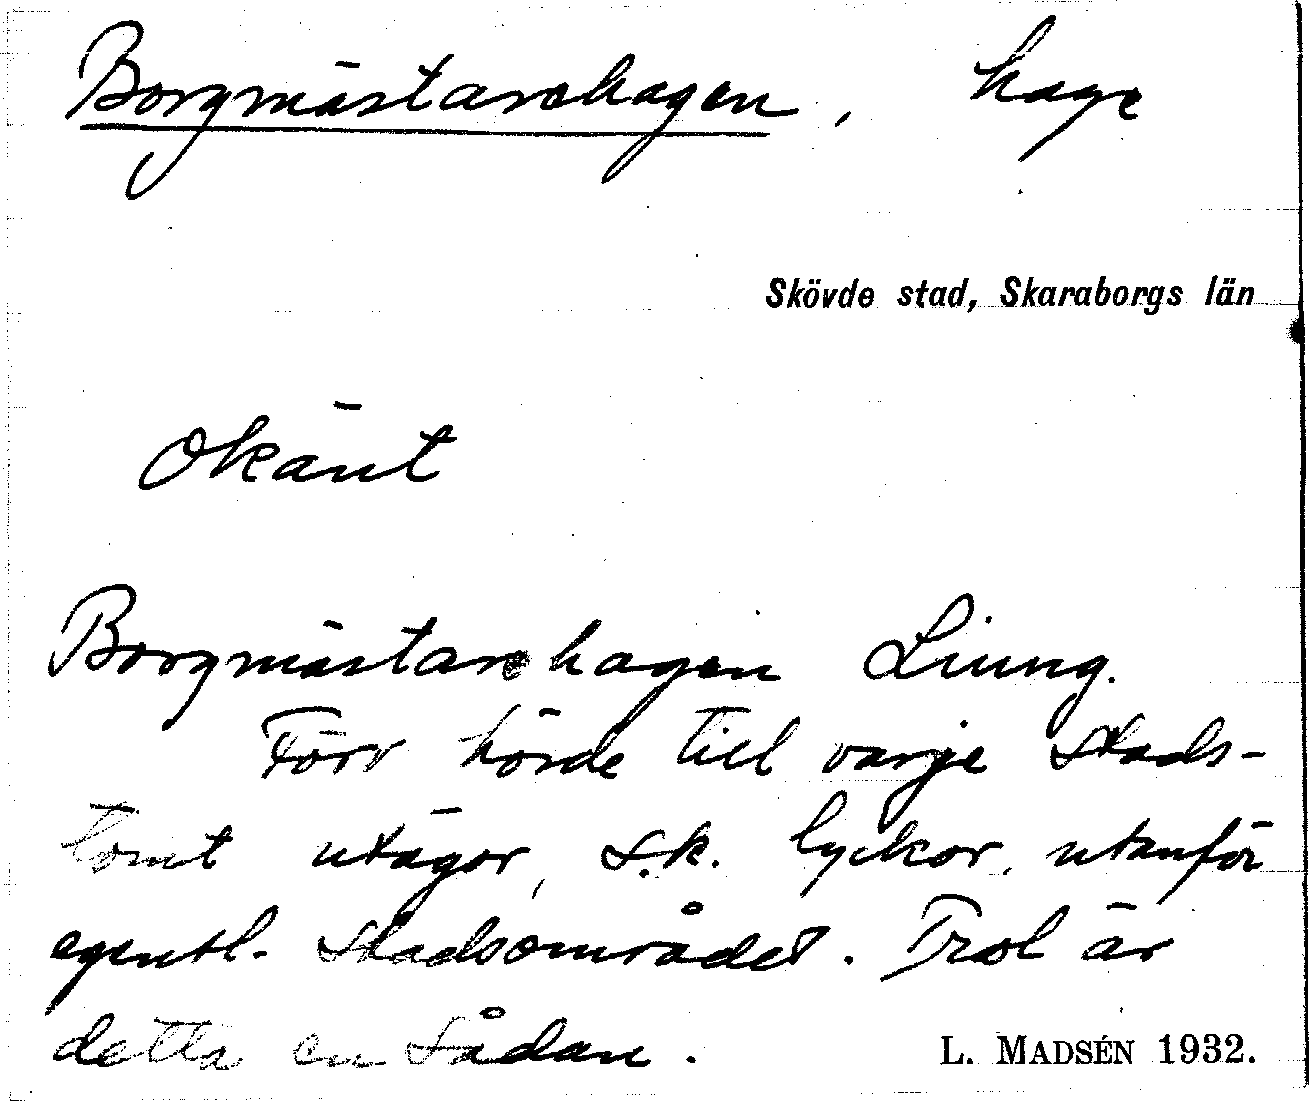 Borgmästarehagen, hage
Skövde stad, Skaraborgs län
Okänt
Borgmästarehagen Liung.
Förr hörde till varje stads-
tomt utägor, s.k. lyckor, utanför
egentl. stadsområdet. Trol är
detta en sådan.
L. MADSÉN 1932.